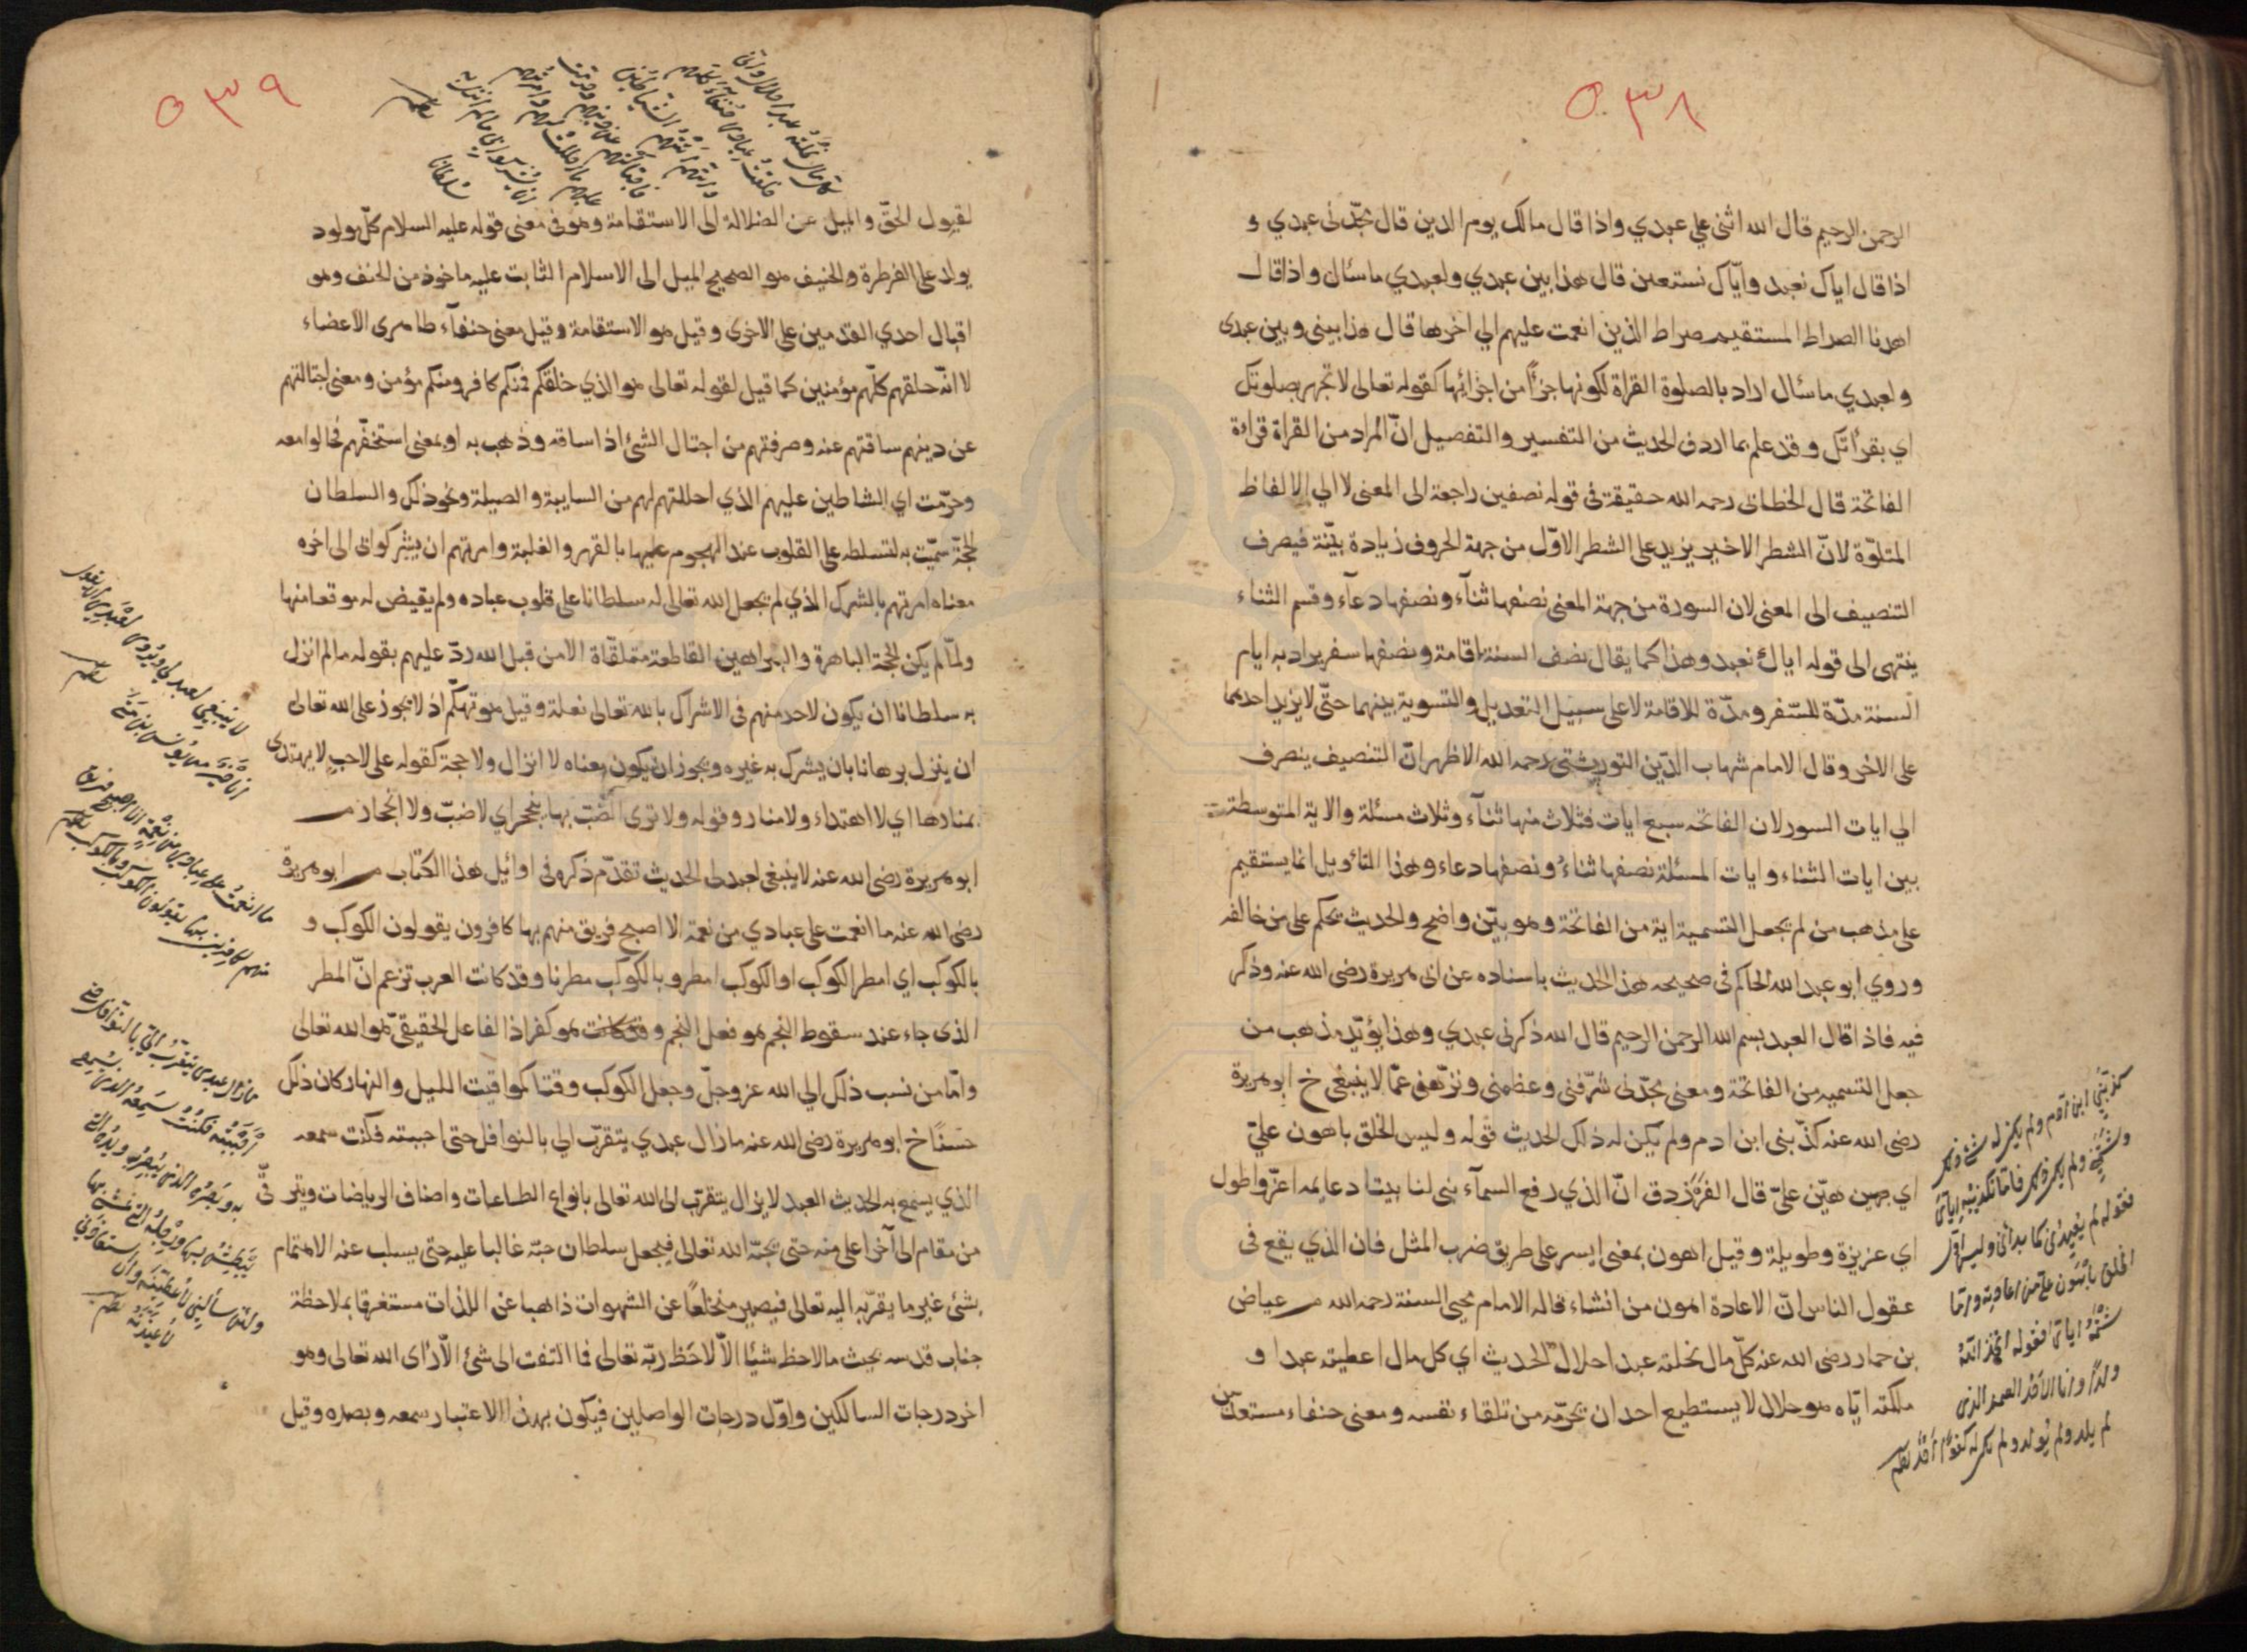 ٥٣٨
الرحمن الرحيم قال الله اثنى علي عبدي واذا قال مالك يوم الدين قال مجّدنى عبدي و
اذا قال اياك نعبد وايّاك نستعين قال هذا بين عبدي ولعبدي ماسئال واذا قال
اهدنا الصراط المستقيم صراط الذين انعمت عليهم الي اخرها قال هذا بينى وبين عبدى
ولعبدي ماسئال اراد بالصلوة القراة لكونها جزأ من اجزائها كقوله تعالى لا تجهر بصلوتك
اي بقرأتك وقد علم بما اردف الحديث من التفسير والتفصيل انّ المراد من القراة قراءة
الفاتحة قال الخطابى رحمه الله حقيقة فى قوله نصفين راجعة الى المعنى لا الي الالفاظ
المتلوّة لانّ الشطر الاخير يزيد على الشطر الاوّل من جهة الحروف زيادة بيّنة فيصرف
التنصيف الى المعنى لان السورة من جهة المعنى نصفها ثنآء ونصفها دعآء وقسم الثناء
ينتهى الى قوله اياك نعبد وهذا كما يقال نصف السنة اقامة ونصفها سفر يراد به ايام
السنة مدّة للسّفر ومدّة للاقامة لا على سبيل التعديل والتسوية بينهما حتّى لا يزيد احدهما
على الاخر وقال الامام شهاب الدّين التوربشتى رحمه الله الاظهر انّ التنصيف ينصرف
الي ايات السور لان الفاتحه سبع ايات فثلاث منها ثنآء وثلاث مسئلة والاية المتوسطة
بين ايات الثناء وايات المسئلة نصفها ثناءُ ونصفها دعاء وهذا التأويل انما يستقيم
على مذهب من لم يجعل التسمية اية من الفاتحة وهو بيّن واضح والحديث يحكم على من خالفه
وروي ابو عبد الله الحاكم فى صحيحه هذا الحديث باسناده عن ابى هريرة رضى الله عنه وذكر
فيه فاذا قال العبد بسم الله الرحمن الرحيم قال الله ذكرنى عبدي وهذا يؤيّد مذهب من
جعل التسميه من الفاتحة ومعنى مجّدنى شرّفنى وعظمنى ونزّهنى عمّا لا ينبغى خ ابو هريرة
رضى الله عنه كذّبنى ابن ادم ولم يكن له ذلك الحديث قوله وليس الخلق باهون عليّ
اي بهين هيّن عليّ قال الفرزدق انّ الذي رفع السمآء بنى لنا بيتا دعايمه اعزّ واطول
اي عزيزة وطويلة وقيل اهون بمعنى ايسر على طريق ضرب المثل فان الذي يقع فى
عقول الناس انّ الاعادة اهون من انشاء قاله الامام محيى السنة رحمه الله م عياض
بن حمار رضى الله عنه كلّ مال نحلته عبدا حلال الحديث اي كل مال اعطيته عبدا و
ملكته ايّاه هو حلال لا يستطيع احد ان يحرّمه من تلقاء نفسه ومعنى حنفاء مستعدّين
كذّبني ابن آدم ولم يكن له ذلك
وشتمني ولم يكن له ذلك فامّا تكذيبه ايّاي
فقوله لم يعيدني كما بدأني وليس اوّل
الخلق باهون علي من اعادته وامّا
شتمه اياي فقوله اتخذ الله
ولدا وانا الاحد الصمد الذي
لم يلد ولم يولد ولم يكن له كفوا احد
٥٣٩
كل مال نحلته عبدا حلال واني
خلقت عبادي حنفاء كلهم
وانهم اتتهم الشياطين
فاجتالتهم عن دينهم وحرّمت
عليهم ما احللت لهم وامرتهم
ان يشركوا بي ما لم انزل به
سلطانا
لقبول الحقّ والميل عن الضلالة الى الاستقامة وهو فى معنى قوله عليه السلام كلّ مولود
يولد على الفرطرة والحنيف هو الصحيح الميل الى الاسلام الثابت عليه ماخوذ من الحنف وهو
اقبال احدي القدمين على الاخرى وقيل هو الاستقامة وقيل معنى حنفآء طاهرى الاعضاء
لا انّه خلقهم كلّهم مؤمنين كما قيل لقوله تعالى هو الذي خلقكم فمنكم كافر ومنكم مؤمن ومعنى اجتالتهم
عن دينهم ساقتهم عنه وصرفتهم من اجتال الشئ اذا ساقه وذهب به او بمعنى استخفّهم فجالوا معه
وحرّمت اي الشاطين عليهم الذي احللتهم لهم من السايبة والوصيلة ونحو ذلك والسلطان
الحجّة سمّيت به لتسلطه على القلوب عند الهجوم عليها بالقهر والغلبة وامرتهم ان يشركوا بى الى اخره
معناه امرتهم بالشرك الذي لم يجعل الله تعالى له سلطانا على قلوب عباده ولم يقيض له موقعا منها
ولمّا لم يكن الحجّة الباهرة والبراهين القاطعة متلقّاة الا من قبل الله ردّ عليهم بقوله ما لم انزل
به سلطانا ان يكون لاحد منهم فى الاشراك بالله تعالى تعلة وقيل هو تهكّم اذ لا يجوز على الله تعالى
ان ينزل برهانا بان يشرك به غيره ويجوز ان يكون معناه لا انزال ولا حجة كقوله على لاحب لا يهتدى
بمنارها اي لا اهتداء ولا منار وقوله ولا ترى الضبّ بها ينجحر اي لا ضبّ ولا انجحار م
ابو هريرة رضى الله عنه لا ينبغى لعبد لى الحديث تقدّم ذكره فى اوائل هذا الكتاب م ابو هريرة
رضى الله عنه ما انعمت على عبادي من نعمة الا اصبح فريق منهم بها كافرون يقولون الكوكب و
بالكوكب اي امطر الكوكب او الكوكب امطر وبالكوكب مطرنا وقد كانت العرب تزعم انّ المطر
الذى جاء عند سقوط النجم هو فعل النجم وقد كانت هو كفر اذ الفاعل الحقيقىّ هو الله تعالى
وامّا من نسب ذلك الي الله عز وجلّ وجعل الكوكب وقتا كمواقيت الليل والنهار كان ذلك
حسنًا خ ابو هريرة رضى الله عنه ما زال عبدي يتقرّب الي بالنوافل حتى احببته فكنت سمعه
الذي يسمع به الحديث العبد لا يزال يتقرّب الى الله تعالى بانواع الطاعات واصناف الرياضات ويترقّى
من مقام الى آخر اعلى منه حتى يحبّه الله تعالى فيجعل سلطان حبّه غالبا عليه حتى يسلب عنه الاهتمام
بشئ غير ما يقرّبه اليه تعالى فيصير منخلعًا عن الشهوات ذاهبا عن اللذات مستغرقا بملاحظة
جناب قدسه بحيث ما لاحظ شيئا الّا لاحَظ ربّه تعالى فما التفت الى شئ الّا رأى الله تعالى وهو
اخر درجات السالكين واوّل درجات الواصلين فيكون بهذا الاعتبار سمعه وبصره وقيل
لا ينبغي لعبد لي ويروى لعبدي ان يقول
انا خير من يونس بن متى
ما انعمت على عبادي من نعمة الا اصبح فريق
منهم كافرين بها يقولون الكوكب وبالكوكب
ما زال عبدي يتقرب الي بالنوافل حتى
احببته فكنت سمعه الذي يسمع
به وبصره الذي يبصر به ويده التي
يبطش بها ورجله التي يمشي بها
ولئن سألني لاعطينّه ولئن استعاذني
لاعيذنه